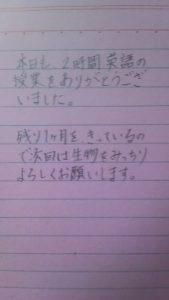 本日も、2時間英語の
授業をありがとうござ
いました。
残り1ヶ月をきっているの
で次回は生物をみっちり
よろしくお願いします。